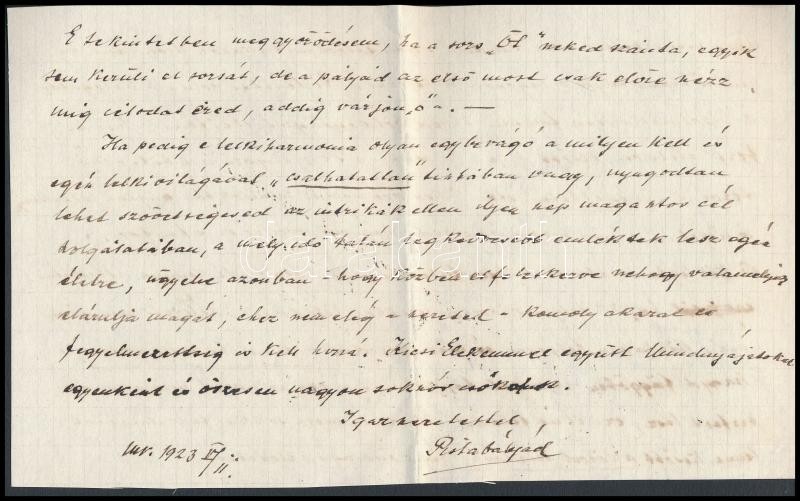 E tekintetben meggyőződésem, ha a sors „Őt" neked szánta, egyik
sem kerüli el sorsát, de a pályád az első most csak előre nézz
míg célodat éred, addig várjon „ő". —
Ha pedig e lelkiharmonia olyan egybevágó a milyen kell és
egész lelkivilágával „csalhatatlan" tisztában vagy, nyugodtan
lehet szövetségesed az intrikák ellen ilyen nép magantos cél
szolgálatában, a mely idő talán legkedvesebb emléktek lesz egész
életre, ügyelve azonban – hogy közben el feledkezve nehogy valamelyitek
elárulja magát, ehez nem elég – – komoly akarat és
fegyelmezettség is kell hozzá. Kicsi Elekemmel együtt Mindnyájatokat
egyenkint és összesen nagyon sokszor csókolunk.
Igaz szeretettel,
Pistabátyád
1923 IV/11.